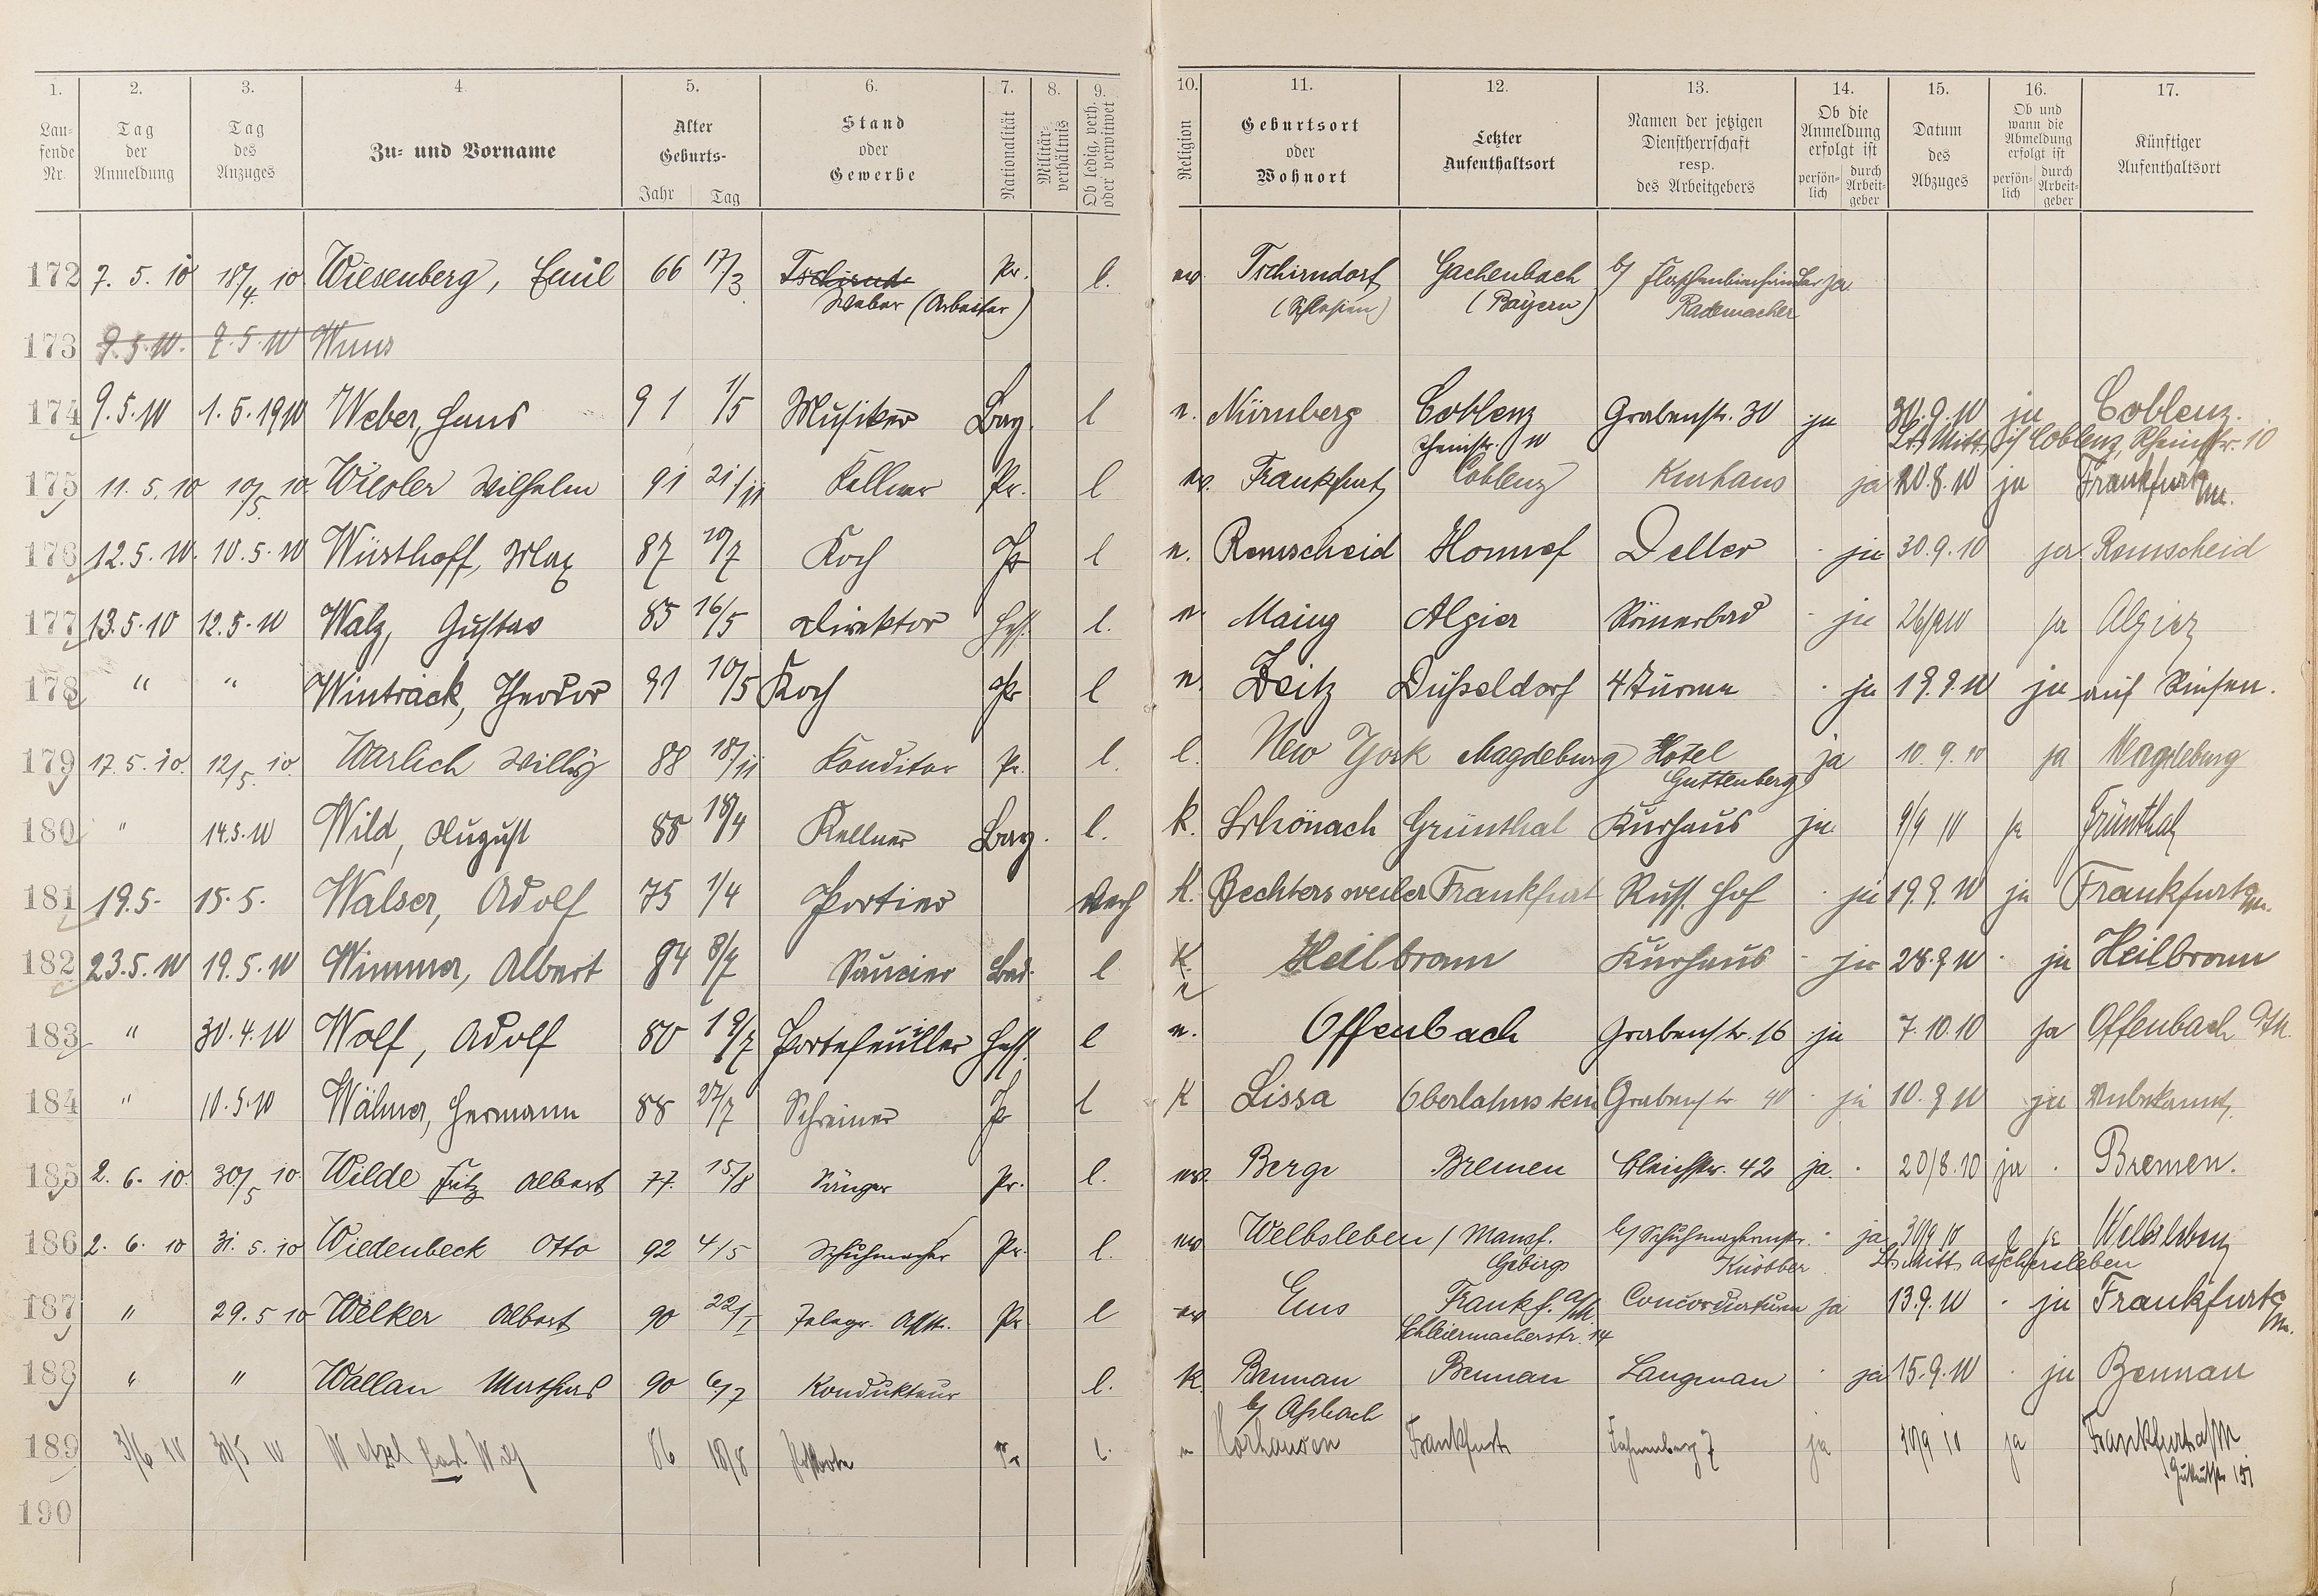 1. 2. 3. 4. 5. 6. 7. 8. 9. 10. 11. 12. 13. 14. 15. 16. 17.
Lau-
fende
Nr.
Tag
der
Anmeldung
Tag
des
Anzuges
Zu- und Vorname
Alter
Geburts-
Jahr Tag
Stand
oder
Gewerbe
Nationalität
Militär-
verhältnis
Ob ledig, verh.
oder verwitwet
Religion
Geburtsort
oder
Wohnort
Letzter
Aufenthaltsort
Namen der jetzigen
Dienstherrschaft
resp.
des Arbeitgebers
Ob die
Anmeldung
erfolgt ist
persön-
lich
durch
Arbeit-
geber
Datum
des
Abzuges
Ob und
wann die
Abmeldung
erfolgt ist
persön-
lich
durch
Arbeit-
geber
Künftiger
Aufenthaltsort
172 7. 5. 10 18/4. 10 Wiesenberg, Emil 66 17/3 Tschirnd Pr. l. ev. Tschirndorf Gachenbach b/ ja
Weber (Arbeiter) (Schlesien) (Bayern) Rademacher
173 9.5.10. 7.5.10 Wuns
174 9.5.10 1.5.1910 Weber, Hans 91 1/5 Musiker Bay. l e. Nürnberg Coblenz Grabenstr. 30 ja 30.9.10 ja Coblenz.
Rheinstr. 10 Lt. Mitt. Coblenz, Rheinstr. 10
175 11. 5. 10 10/5. 10. Wiesler Wilhelm 91 21/11 Kellner Pr. l ev. Frankfurt Coblenz Kurhaus ja 20.8.10 ja Frankfurt a/M.
176 12.5.10. 10.5.10 Wüsthoff, Max 87 10/7 Koch Pr l e. Remscheid Honnef Deller ja 30.9.10 ja Remscheid
177 13.5.10 12.5.10 Walz, Gustav 85 16/5 Direktor Hess. l. e. Mainz Algier Römerbad ja 26/9 10 ja Algier
178 " " Wintrack, Theodor 91 10/5 Koch Pr l e. Zeitz Düsseldorf 4 Türme ja 19.9.10 ja auf Reisen.
179 17. 5. 10. 12/5. 10. Warlich Willy 88 18/11 Konditor Pr. l. l. New York Magdeburg Hotel ja 10. 9. 10 ja Magdeburg
Guttenberg
180 " 14.5.10 Wild, August 88 18/4 Kellner Bay. l. k. Schönach Grünthal Kurhaus ja. 9/9 10 ja Grünthal
181 19.5. 15.5. Walser, Adolf 75 1/4 Portier verh k. Bechtersweiler Frankfurt Russ. Hof ja 19.9.10 ja Frankfurt a/M.
182 23.5.10 19.5.10 Wimmer, Albert 84 8/9 Saucier Bad. l k. Heilbronn Kurhaus ja 28.9.10 ja Heilbronn
e
183 " 30.4.10 Wolf, Adolf 80 19/7 Portefeuiller Hess. l e. Offenbach Grabenstr. 16 ja 7.10.10 ja Offenbach a/M.
184 " 10.5.10 Wähner, Hermann 88 27/7 Schreiner Pr l k Lissa Oberlahnstein Grabenstr 40 ja 10.9.10 ja Unbekannt.
185 2. 6. 10. 30/5 10. Wilde Fritz Albert 77. 15/8 Sänger Pr. l. ev. Berge Bremen Gleichstr. 42 ja. 20/8.10 ja Bremen.
186 2. 6. 10 31. 5. 10 Wiedenbeck Otto 92 4/5 Schuhmacher Pr. l. ev Welbsleben / Mansf. b/ Schuhmacherstr. ja 30/9 10 ja Welbsleben
Gebirgs Knobber Lt. Mitt. Aschersleben
187 " 29. 5 10 Welker Albert 90 22/1 Telegr. Asst. Pr l ev Ems Frankf. a/M. Concordiaturm ja 13.9.10 ja Frankfurt a/M.
Schleiermacherstr. 14
188 " " Wallau Mathias 90 6/7 Kondukteur l. k. Bennau Bennau Langenau ja 15.9.10 ja Bennau
b/ Asbach
189 3/6 10 31/5 10 Wetzel 86 18/8 Pr l. Horhausen Frankfurt 7 ja 30/9 10 ja Frankfurt a/M
190